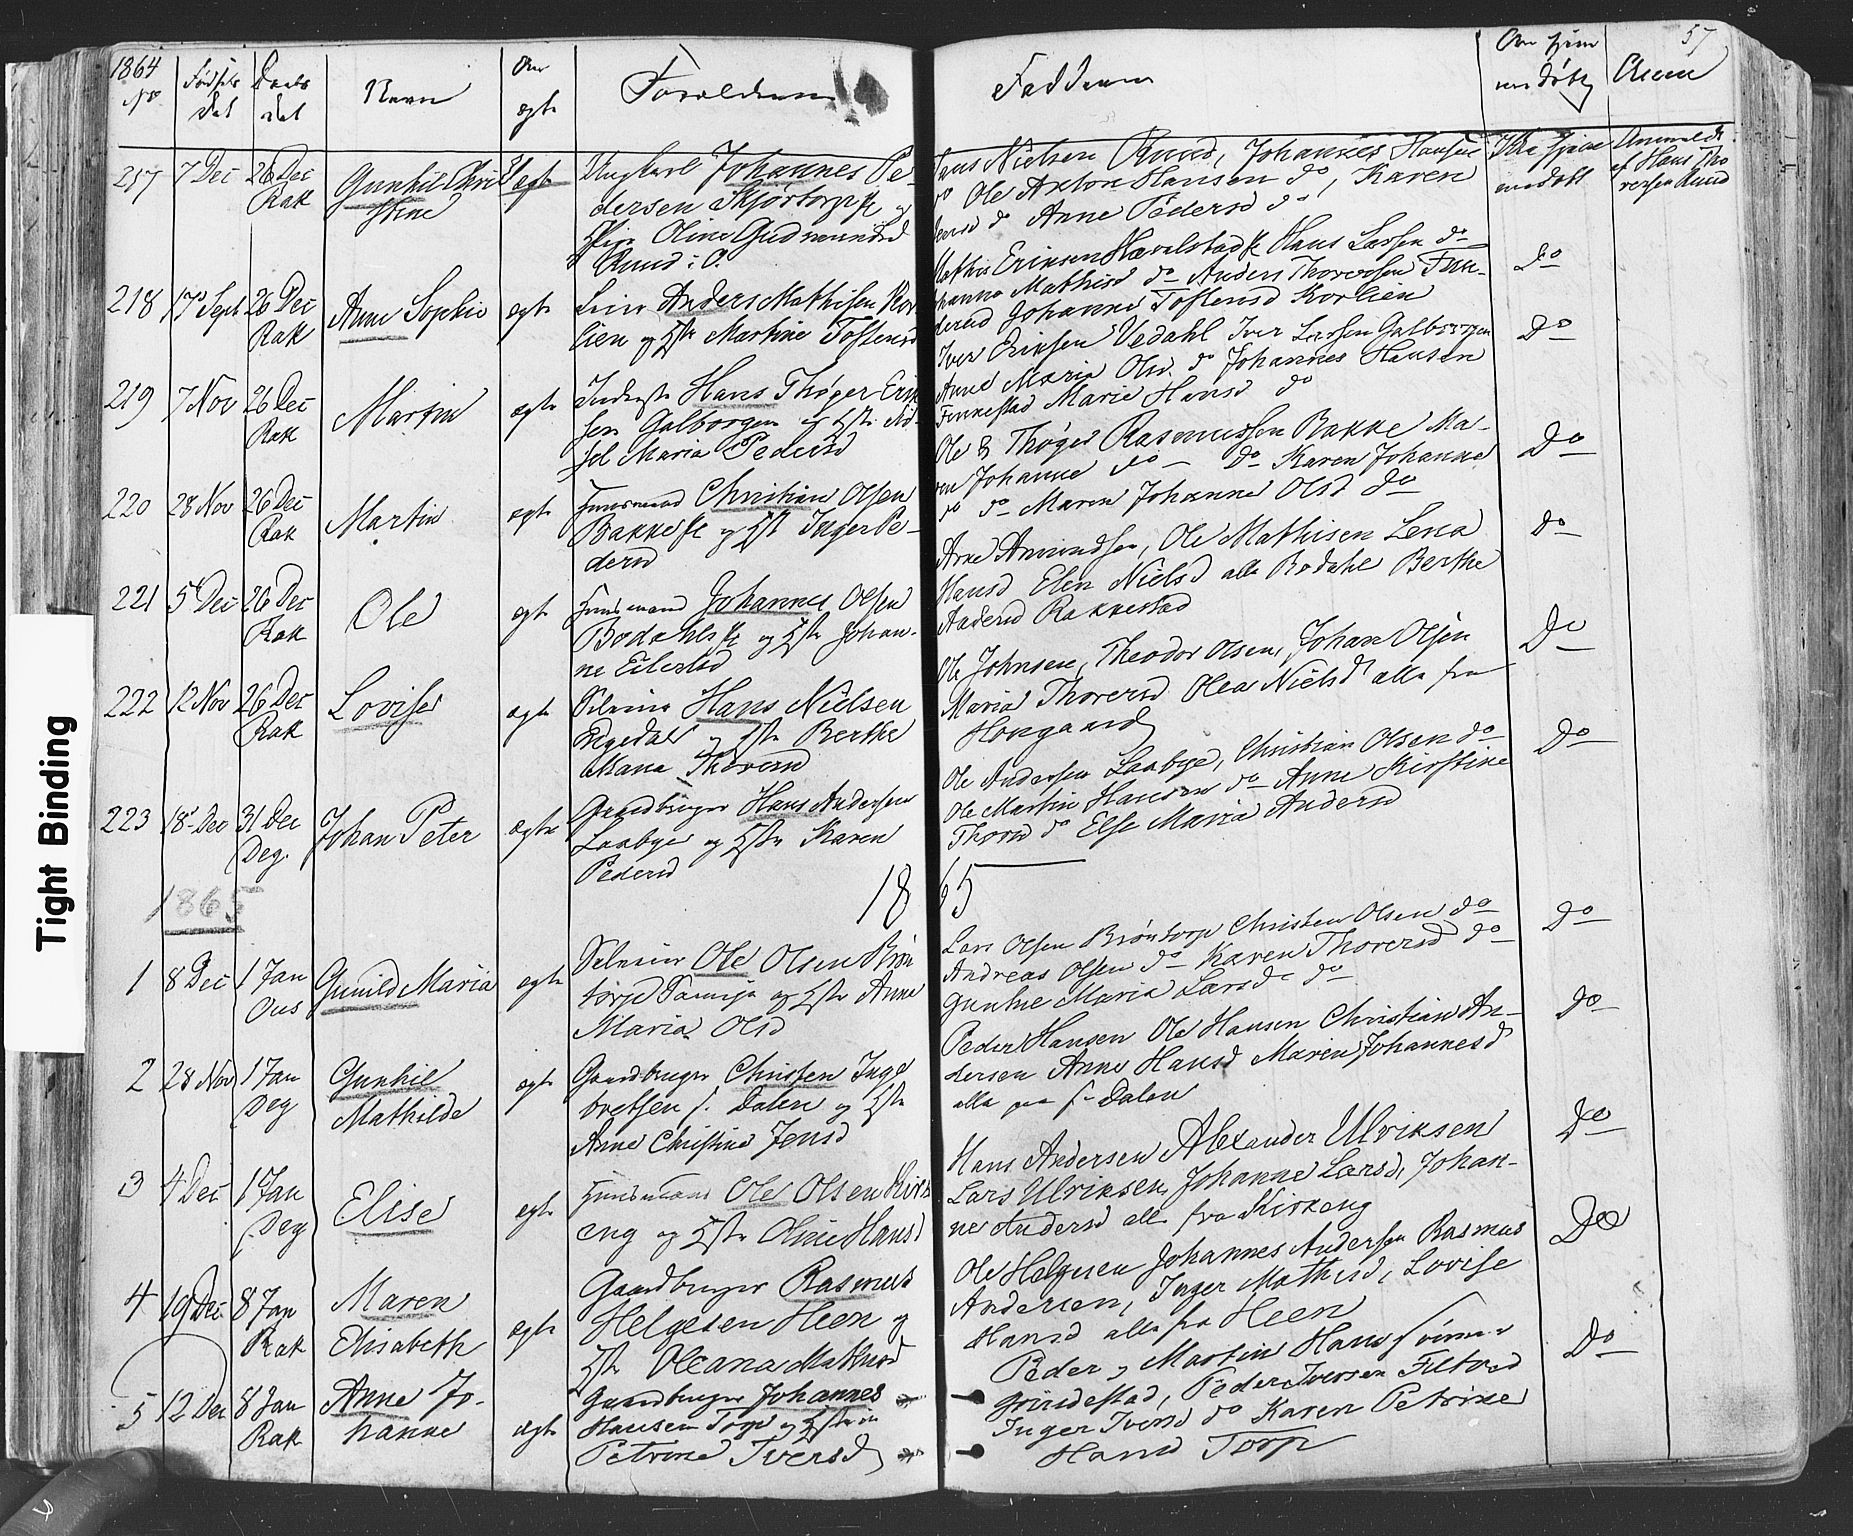 1864
No
Fødsels
dat
Daabs
dat
Navn
Om
ægte
Forældrene
Faddere
Om hjem
medøbt
Anm
57
217 7 Dec 26 Dec
Rak
Gunhil Chri
stine
Uægte
Ungkarl Johannes Pe-
dersen Skjørtorp
Pige Oline Gudmundsd
Ruud i O.
Hans Nielsen Ruud, Johannes Hansen
do Ole Anton Hansen do, Karen
do Anne Pedersd do
Ikke hjem
medøbt
Anmeldt
af Hans Tho
resen Ruud
218 17 Sept 26 Dec
Rak
Anne Sophie
ægte
Anders Mathisen Kor
lien og Hstr Martine Toftensd
Mathis Eriksen Hans Larsen do
Johanna Mathisd do Anders Thorersen Fin-
Johanne Toftensd Korlien
Do
219 7 Nov 26 Dec
Rak
Martin
ægte
Inderste Hans Thøger Erik
sen Galborgen og Hstr
Maria Pedersd
Iver Eriksen Vedahl Iver Larsen Galborgen
Anne Maria Olsd. do Johannes Hansen
Finnestad Marie Hansd do
Do
220 28 Nov 26 Dec
Rak
Martin
ægte
Huusmand Christian Olsen
Bakke og Hst Inger Pe-
dersd
Ole & Thøger Rasmussen Bakke Ma-
ren Johanne do do Karen Johanne
do do Maren Johanne Olsd do
Do
221 5 Dec 26 Dec
Rak
Ole
ægte
Huusmand Johannes Olsen
Bodahl og Hstr Johan-
ne Eilertsd
Arne Amundsen, Ole Mathisen Lena
Hansd Elen Nielsd alle Bodahl Berthe
Andersd Rakkestad
Do
222 12 Nov 26 Dec
Rak
Lovise
ægte
Selveier Hans Nielsen
og Hstr Berthe
Maria Thorersd
Ole Johnsen, Theodor Olsen, Johan Olsen
Maria Thorersd Olea Nielsd alle fra
Do
223 18 Dec 31 Dec
Deg.
Johan Peter
ægte
Gaardbruger Hans Andersen
Laabye og Hstr Karen
Pedersd
Ole Andersen Laabye, Christian Olsen do
Ole Martin Hansen do Anne Kirstine
Thorsd do Else Maria Andersd
Do
1865
1865
1 8 Dec 1 Jan
Ous
Gunild Maria
ægte
Selveier Ole Olsen Brøn
torp og Hstr Anne
Maria Olsd
Lars Olsen Brøntorp Christen Olsen do
Andreas Olsen do Karen Thorersd do
Gunhil Maria Larsd do
Do
2 28 Nov 1 Jan
Deg
Gunhil
Mathilde
ægte
Gaardbruger Christen Inge
bretsen s. Dalen og Hstr
Anne Christine Jensd
Peder Hansen Ole Hansen Christian An-
dersen Anne Hansd Maren Johannesd
alle paa s. Dalen
Do
3 4 Dec 1 Jan
Deg
Elise
ægte
Huusmand Ole Olsen Kirk
eng og Hstr Oline Hansd
Hans Andersen Alexander Ulriksen
Lars Ulriksen, Johanne Larsd, Johan-
ne Andersd alle fra Kirkeng
Do
4 19 Dec 8 Jan
Rak
Maren
Elisabeth
ægte
Gaardbruger Rasmus
Helgesen Heen og
Hstr Oleana Mathisd
Ole Helgesen Johannes Andersen Rasmus
Andersen, Inger Mathisd, Lovise
Hansd alle fra Heen
Do
5 12 Dec 8 Jan
Rak
Anne Jo-
hanne
ægte
Gaardbruger Johannes
Hansen Torp og Hstr
Petrine Iversd
Peder, Martin Hanssønner
Grindestad, Peder Iversen
Inger Iversd do Karen Petrine
Hansd Torp
Do
Tight Binding